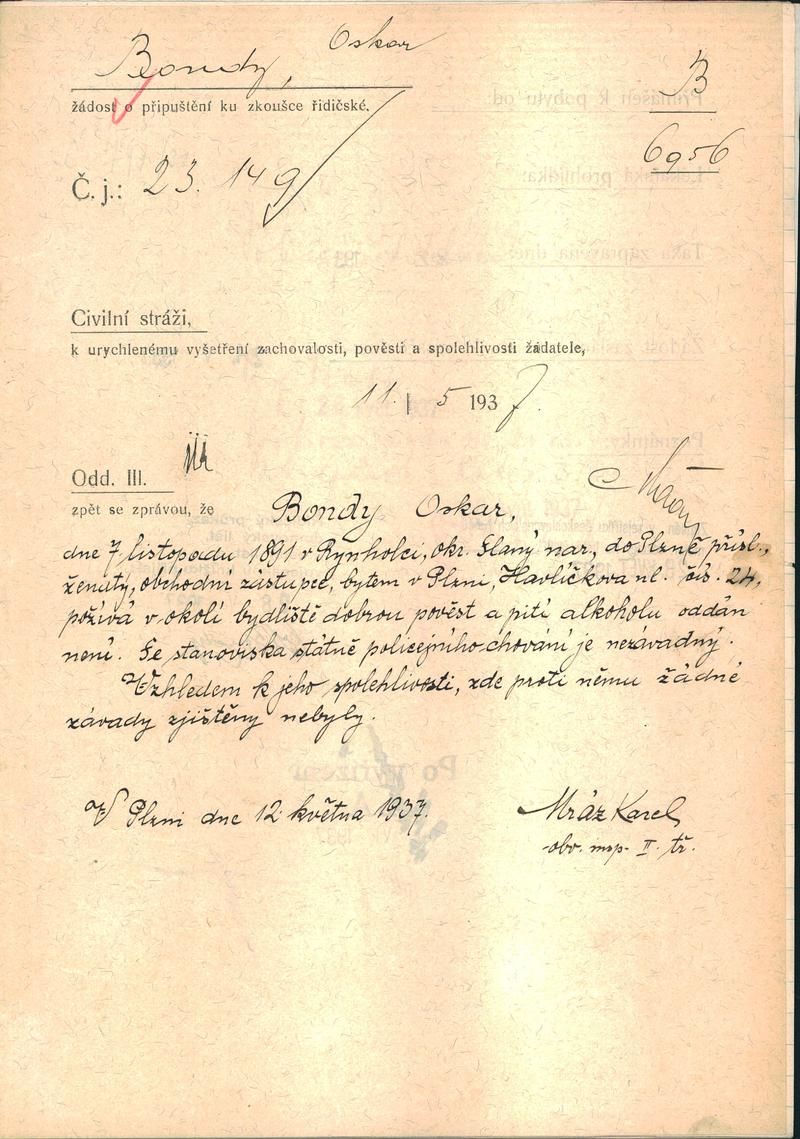 Bondy, Oskar
žádost o připuštění ku zkoušce řidičské.
B
6956
Č. j.: 23.149
Civilní stráži,
k urychlenému vyšetření zachovalosti, pověsti a spolehlivosti žadatele,
11. | 5 1937.
Odd. III.
zpět se zprávou, že Bondy Oskar,
dne 7 listopadu 1891 v Rynholci, okr. Slaný nar., do Plzně přísl.,
ženatý, obchodní zástupce, bytem v Plzni, Havlíčkova ul. čís. 24,
požívá v okolí bydliště dobrou pověst a pití alkoholu oddán
není. Se stanoviska státně policejního chování je nezávadný.
Vzhledem k jeho spolehlivosti, zde proti němu žádné
závady zjištěny nebyly.
V Plzni dne 12 května 1937.
Mráz Karel
obv. insp. II. tř.